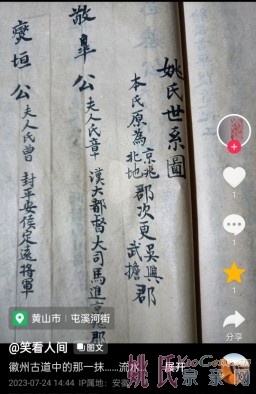 姚氏世系圖
本氏原為京兆北地郡次更吳興郡武擔
敬皐公
夫人氏章
漢大都督大司馬進
郡
燮垣公
夫人氏曾
封平安侯定遠將軍
1
分享
黄山市 | 屯溪河街
@笑看人间 图文
徽州古道中的那一抹......流水
展开
2023-07-24 14:44 IP属地：安徽
姚氏宗亲网